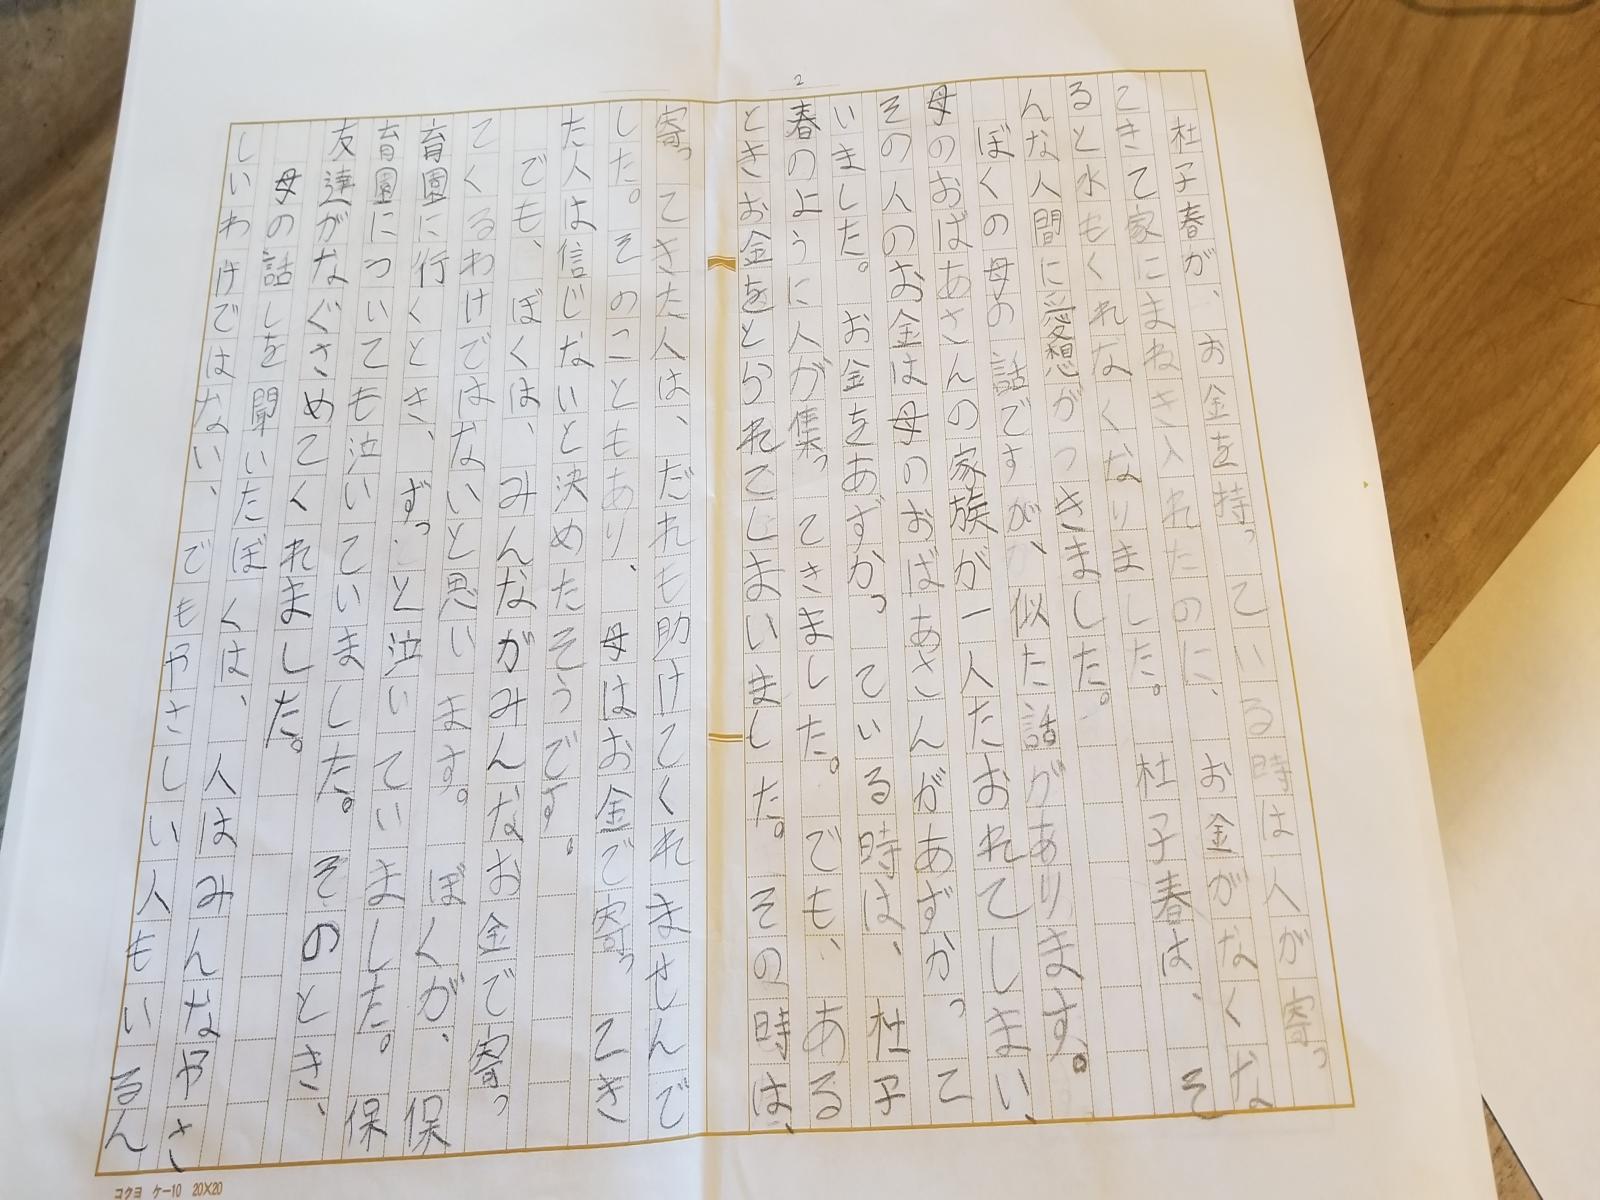 2
杜子春が、お金を持っている時は人が寄っ
てきて家にまねき入れたのに、お金がなくな
ると水もくれなくなりました。杜子春は、そ
んな人間に愛想がつきました。
ぼくの母の話ですが、似た話があります。
母のおばあさんの家族が一人たおれてしまい、
その人のお金は母のおばあさんがあずかって
いました。お金をあずかっている時は、杜子
春のように人が集ってきました。でも、ある
ときお金をとられてしまいました。その時は、
寄ってきた人は、だれも助けてくれませんで
した。そのこともあり、母はお金で寄ってき
た人は信じないと決めたそうです。
でも、ぼくは、みんながみんなお金で寄っ
てくるわけではないと思います。ぼくが、保
育園に行くとき、ずっと泣いていました。保
育園についても泣いていました。そのとき、
友達がなぐさめてくれました。
母の話しを聞いたぼくは、人はみんなやさ
しいわけではない、でもやさしい人もいるん
コクヨ ケー10 20×20